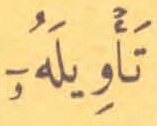 تَأْوِيلَهُۥٓ